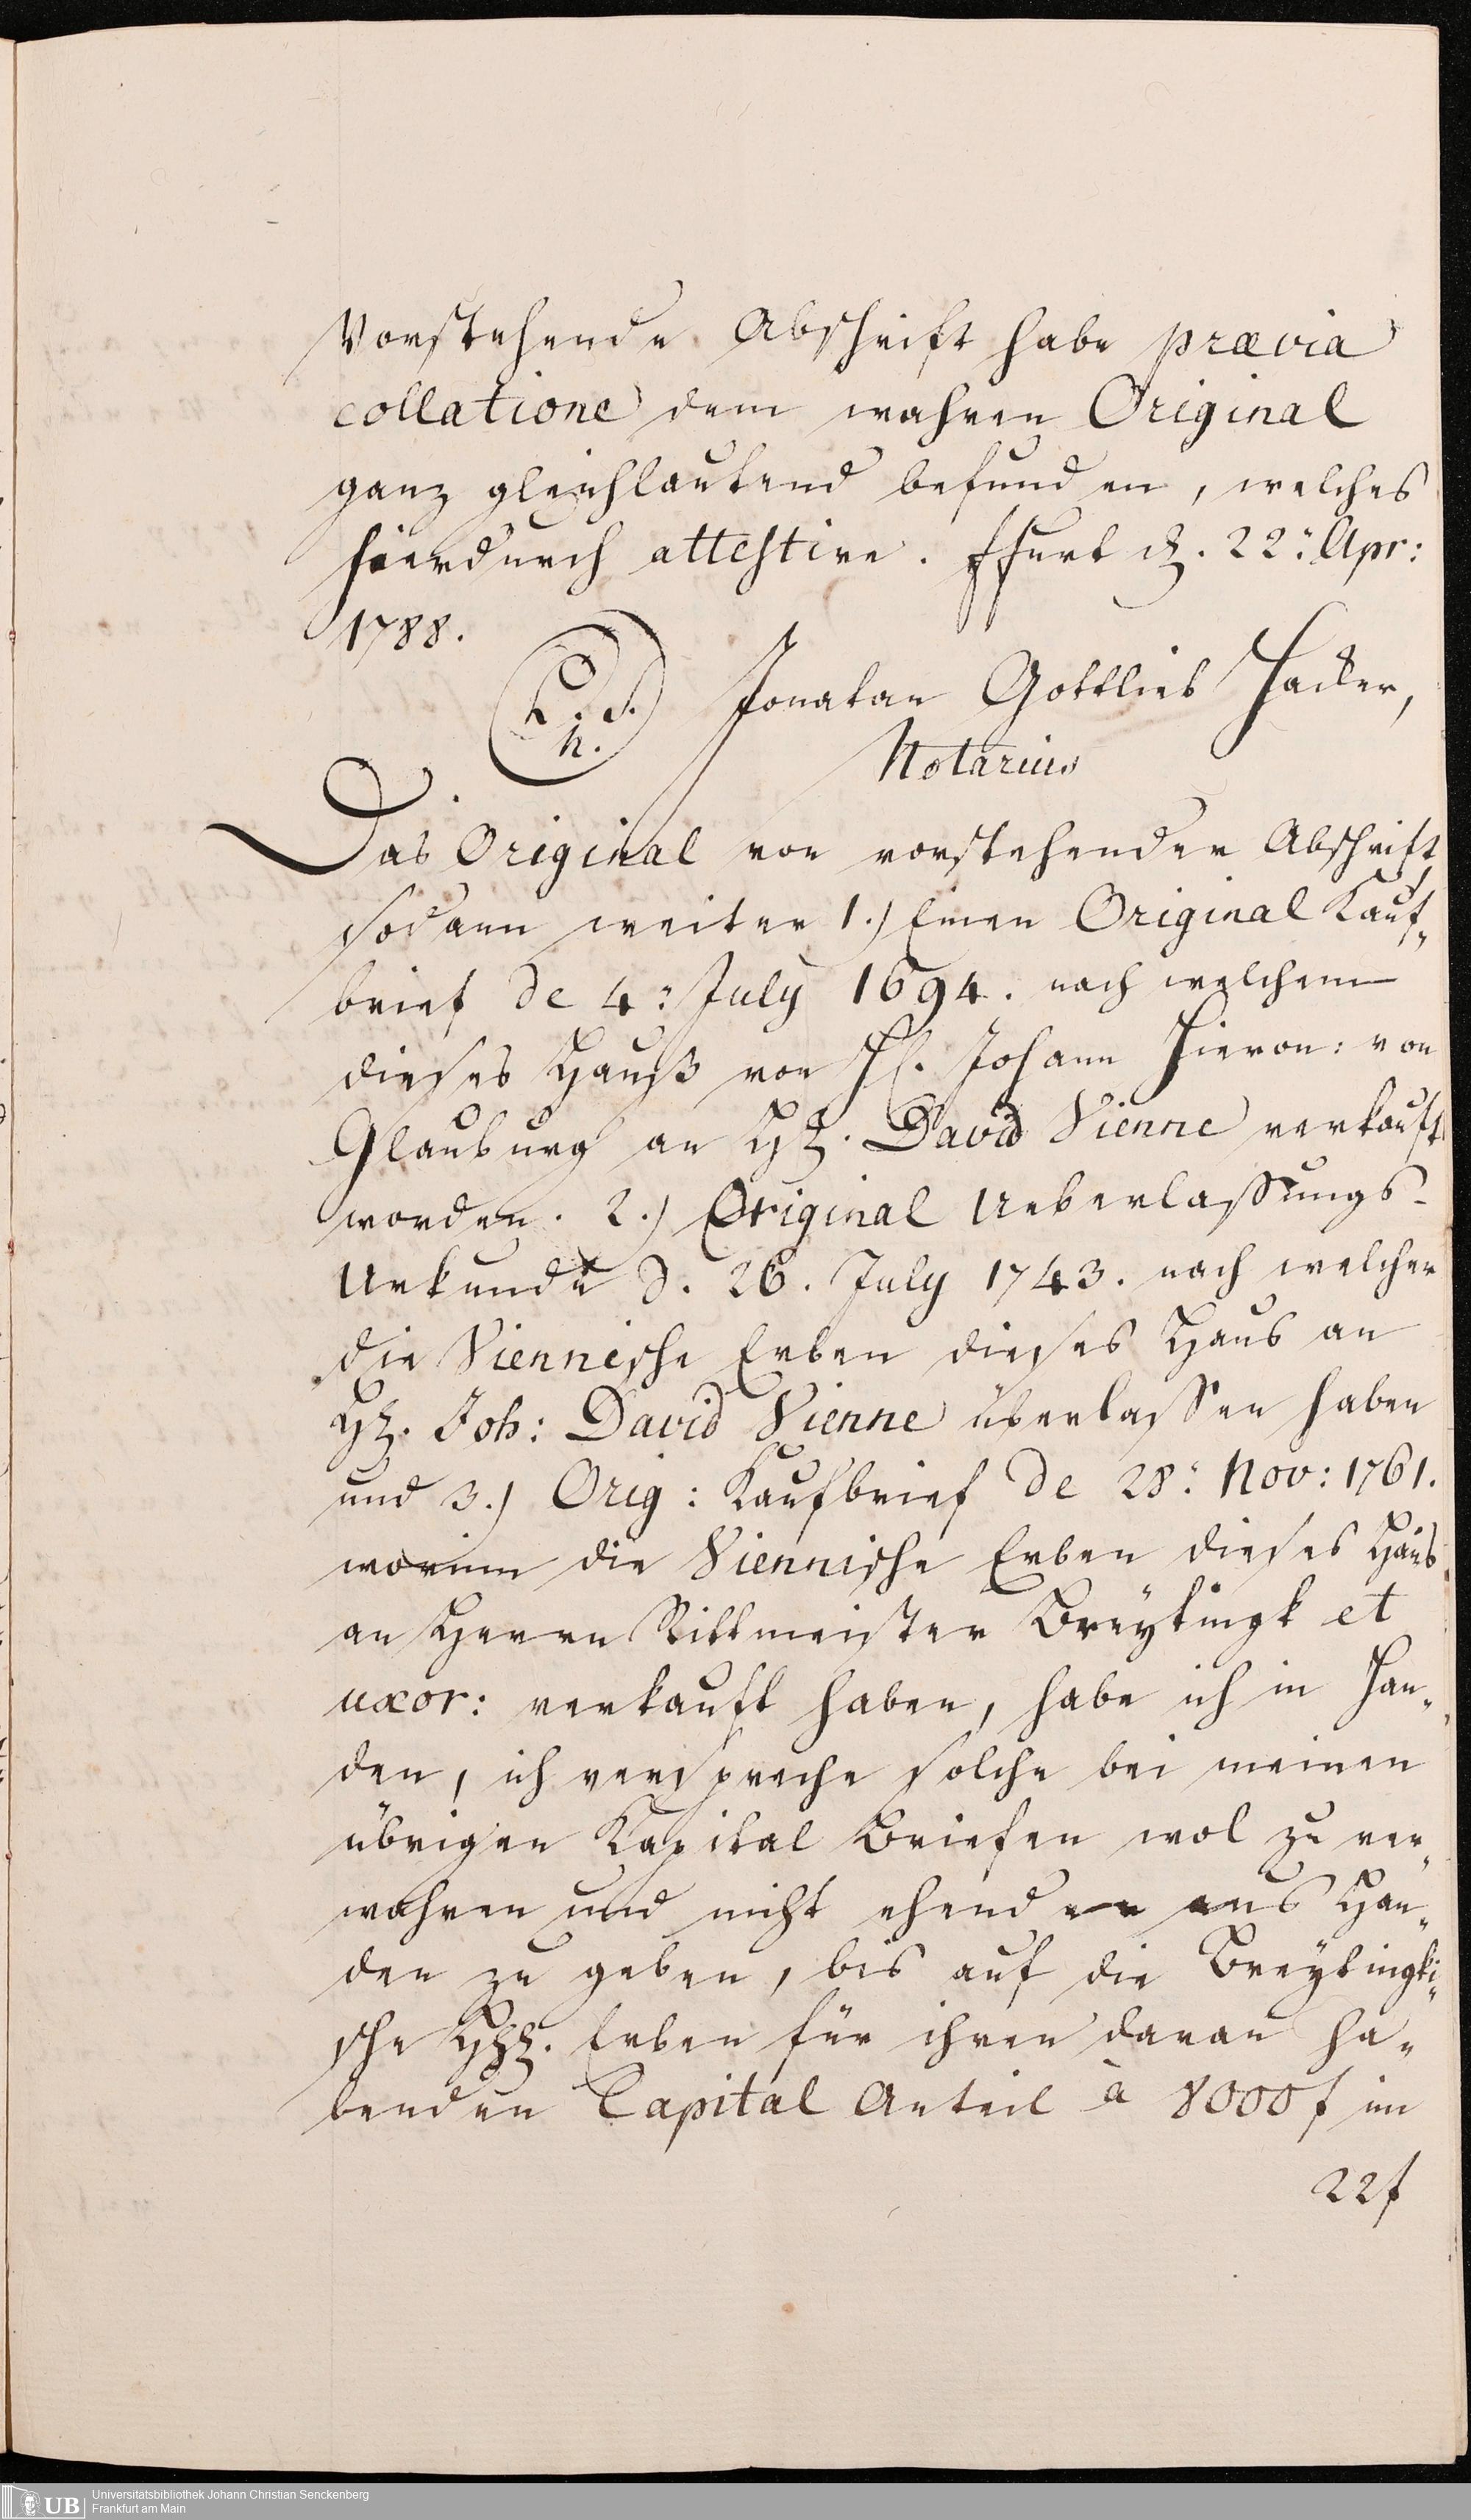 Vorstehende Abschrift habe prævia
collatione dem wahren Original
ganz gleichlautend befunden, welches
hierdurch attestire. Ffurt d. 22: Apr:
1788.
L. S.
N.
Jonatan Gottlieb Hacker,
Notarius
Das Original von vorstehender Abschrift
sodann weiter 1.) Einen Original Kauf-
brief de 4: July 1694. nach welchem
dieses Hauß von H. Johann Hieron: von
Glauburg an Hr. David Vienne verkauft
worden. 2.) Original Ueberlassungs-
Urkunde d. 26. July 1743. nach welcher
die Viennische Erben dieses Haus an
Hr. Joh: David Vienne überlassen haben
und 3.) Orig: Kaufbrief de 28: Nov: 1761.
worinn die Viennische Erben dieses Haus
an Herrn Rittmeister Breytingk et
uxor: verkauft haben, habe ich in Han-
den, ich verspreche solche bei meinen
übrigen Kapital Briefen wol zu ver-
wahren und nicht ehender aus Han-
den zu geben, bis auf die Breytingki-
sche Hrr. Erben für ihren daran ha-
benden Capital Anteil à 8000 f im
22 f
Universitätsbibliothek Johann Christian Senckenberg
Frankfurt am Main
UB